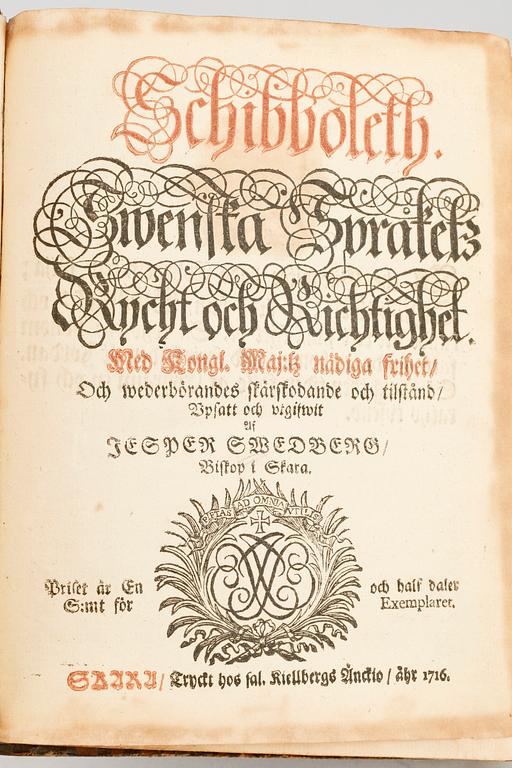 Schibboleth.
Swenska Språkets
Rycht och Richtighet.
Med Kongl. Maj:tz nådiga frihet/
Och wederbörandes skärskodande och tilstånd/
Vpsatt och vtgifwit
Af
JESPER SWEDBERG/
Biskop i Skara.
PIETAS AD OMNIA UTILIS
Priset är En och half daler
S:mt för Exemplaret.
SKARA/ Tryckt hos sal. Kiellbergs Änckio / åhr 1716.